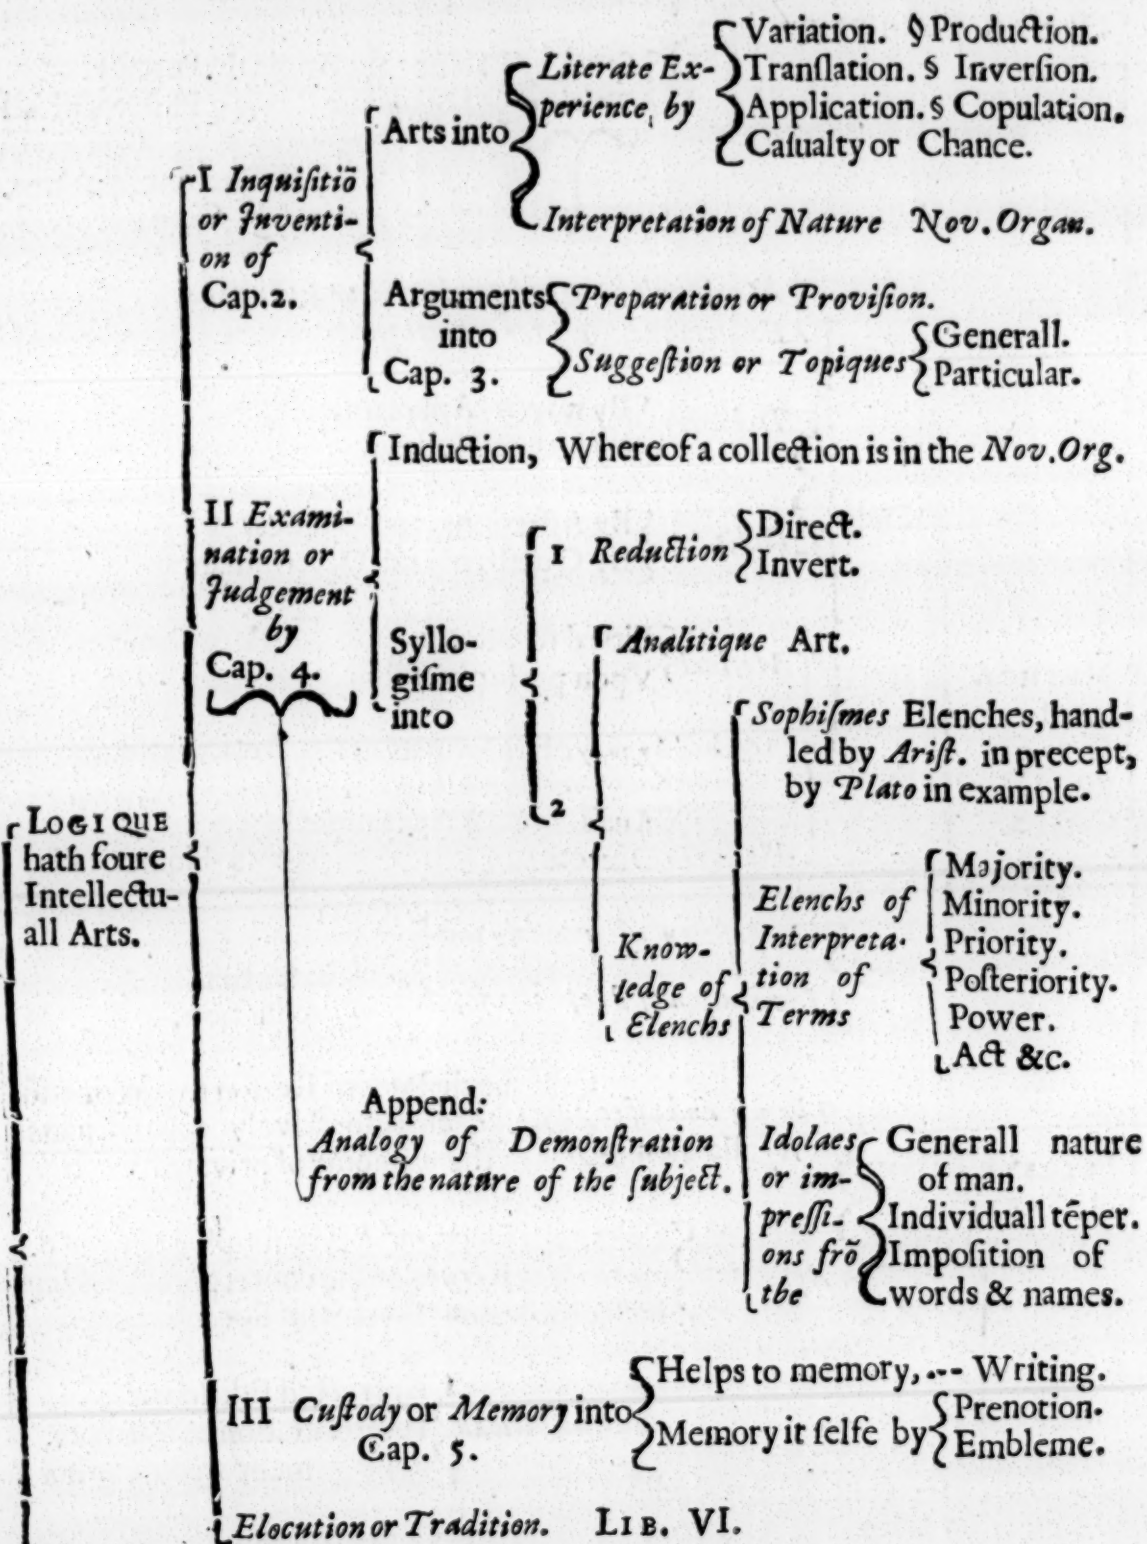 LOGIQUE
hath foure
Intellectu-
all Arts.
I Inquiſitiõ
or Inventi-
on of
Cap.2.
Arts into
Literate Ex-
perience, by
Variation. § Production.
Tranſlation. § Inverſion.
Application. § Copulation.
Caſualty or Chance.
Interpretation of Nature Nov. Organ.
Arguments
into
Cap. 3.
Preparation or Proviſion.
Suggeſtion or Topiques
Generall.
Particular.
II Exami-
nation or
Judgement
by
Cap. 4.
Induction, Whereof a collection is in the Nov. Org.
Syllo-
giſme
into
1 Reduction
Direct.
Invert.
2
Analitique Art.
Know-
ledge of
Elenchs
Sophiſmes Elenches, hand-
led by Ariſt. in precept,
by Plato in example.
Elenchs of
Interpreta-
tion of
Terms
Majority.
Minority.
Priority.
Poſteriority.
Power.
Act &c.
Idolaes
or im-
preſſi-
ons frõ
the
Generall nature
of man.
Individuall tẽper.
Impoſition of
words & names.
Append:
Analogy of Demonſtration
from the nature of the ſubject.
III Cuſtody or Memory into
Cap. 5.
Helps to memory, --- Writing.
Memory it ſelfe by
Prenotion.
Embleme.
Elocution or Tradition. LIB. VI.